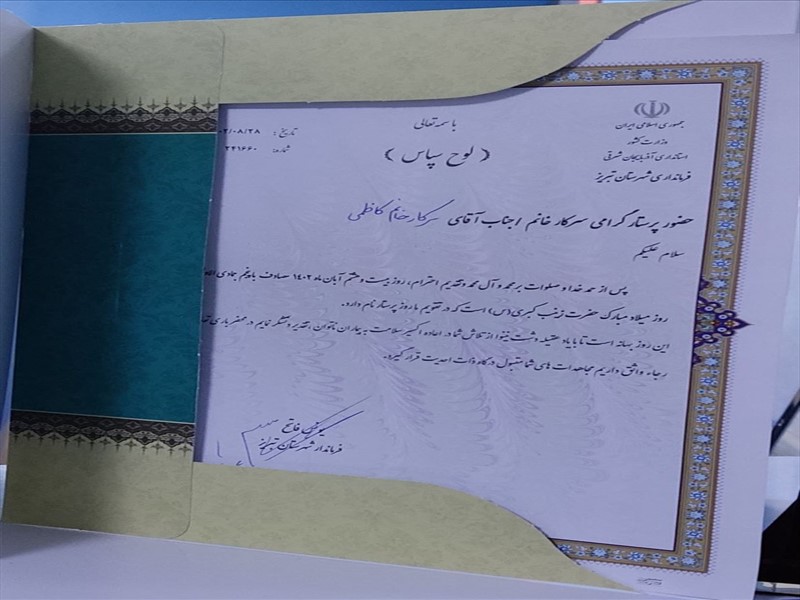 جمهوری اسلامی ایران
وزارت کشور
استانداری آذربایجان شرقی
فرمانداری شهرستان تبریز
باسمه تعالی
( لوح سپاس )
تاریخ : ۰۲/۰۸/۲۸
شماره:
حضور پرستار گرامی سرکار خانم / جناب آقای سرکار خانم کاظمی
سلام علیکم
پس از حمد خدا و صلوات بر محمد و آل محمد و تقدیم احترام، روز بیست و هشتم آبان ماه ۱۴۰۲ مصادف با پنجم جمادی
روز میلاد مبارک حضرت زینب کبری (س) است که در تقویم ما روز پرستار نام دارد.
این روز بهانه است تا با یاد عقیله دشت نینوا از تلاش شما در اعاده اکسیر سلامت به بیماران ناتوان، تقدیر و تشکر نمایم در محضر باری
رجاء واثق داریم مجاهدت های شما مقبول درگاه ذات احدیت قرار گیرد.
فاتح
فرماندار شهرستان تبریز